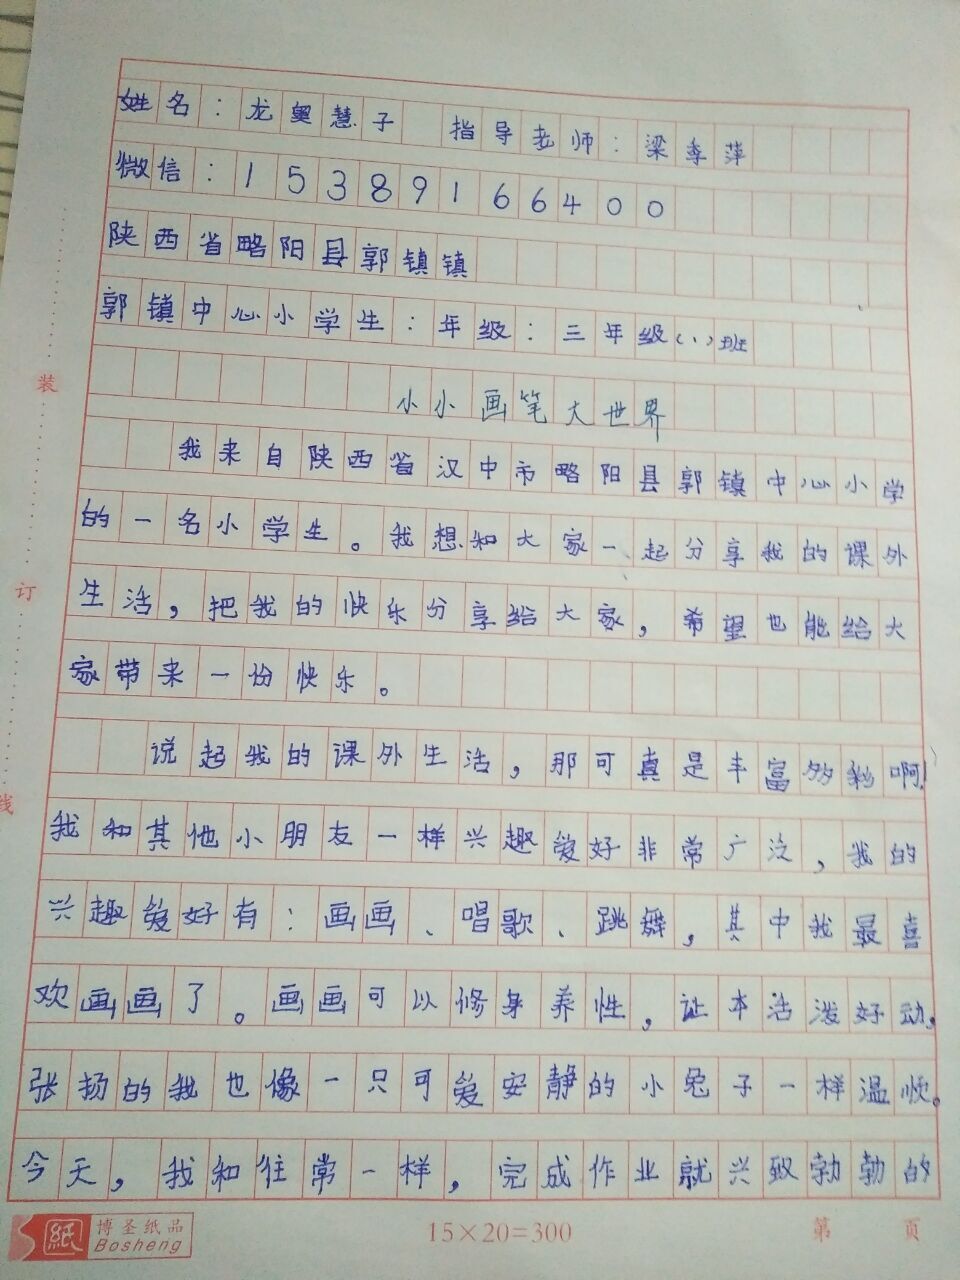 姓名：龙奥慧子 指导老师：梁季萍
微信：15389166400
陕西省略阳县郭镇镇
郭镇中心小学生：年级：三年级（1）班
小小画笔大世界
我来自陕西省汉中市略阳县郭镇中心小学
的一名小学生。我想和大家一起分享我的课外
生活，把我的快乐分享给大家，希望也能给大
家带来一份快乐。
说起我的课外生活，那可真是丰富多彩啊！
我和其他小朋友一样兴趣爱好非常广泛，我的
兴趣爱好有：画画、唱歌、跳舞，其中我最喜
欢画画了。画画可以修身养性，让本活泼好动，
张扬的我也像一只可爱安静的小兔子一样温顺。
今天，我和往常一样，完成作业就兴致勃勃的
装
订
线
紙
博圣纸品
Bosheng
15×20=300
第 页